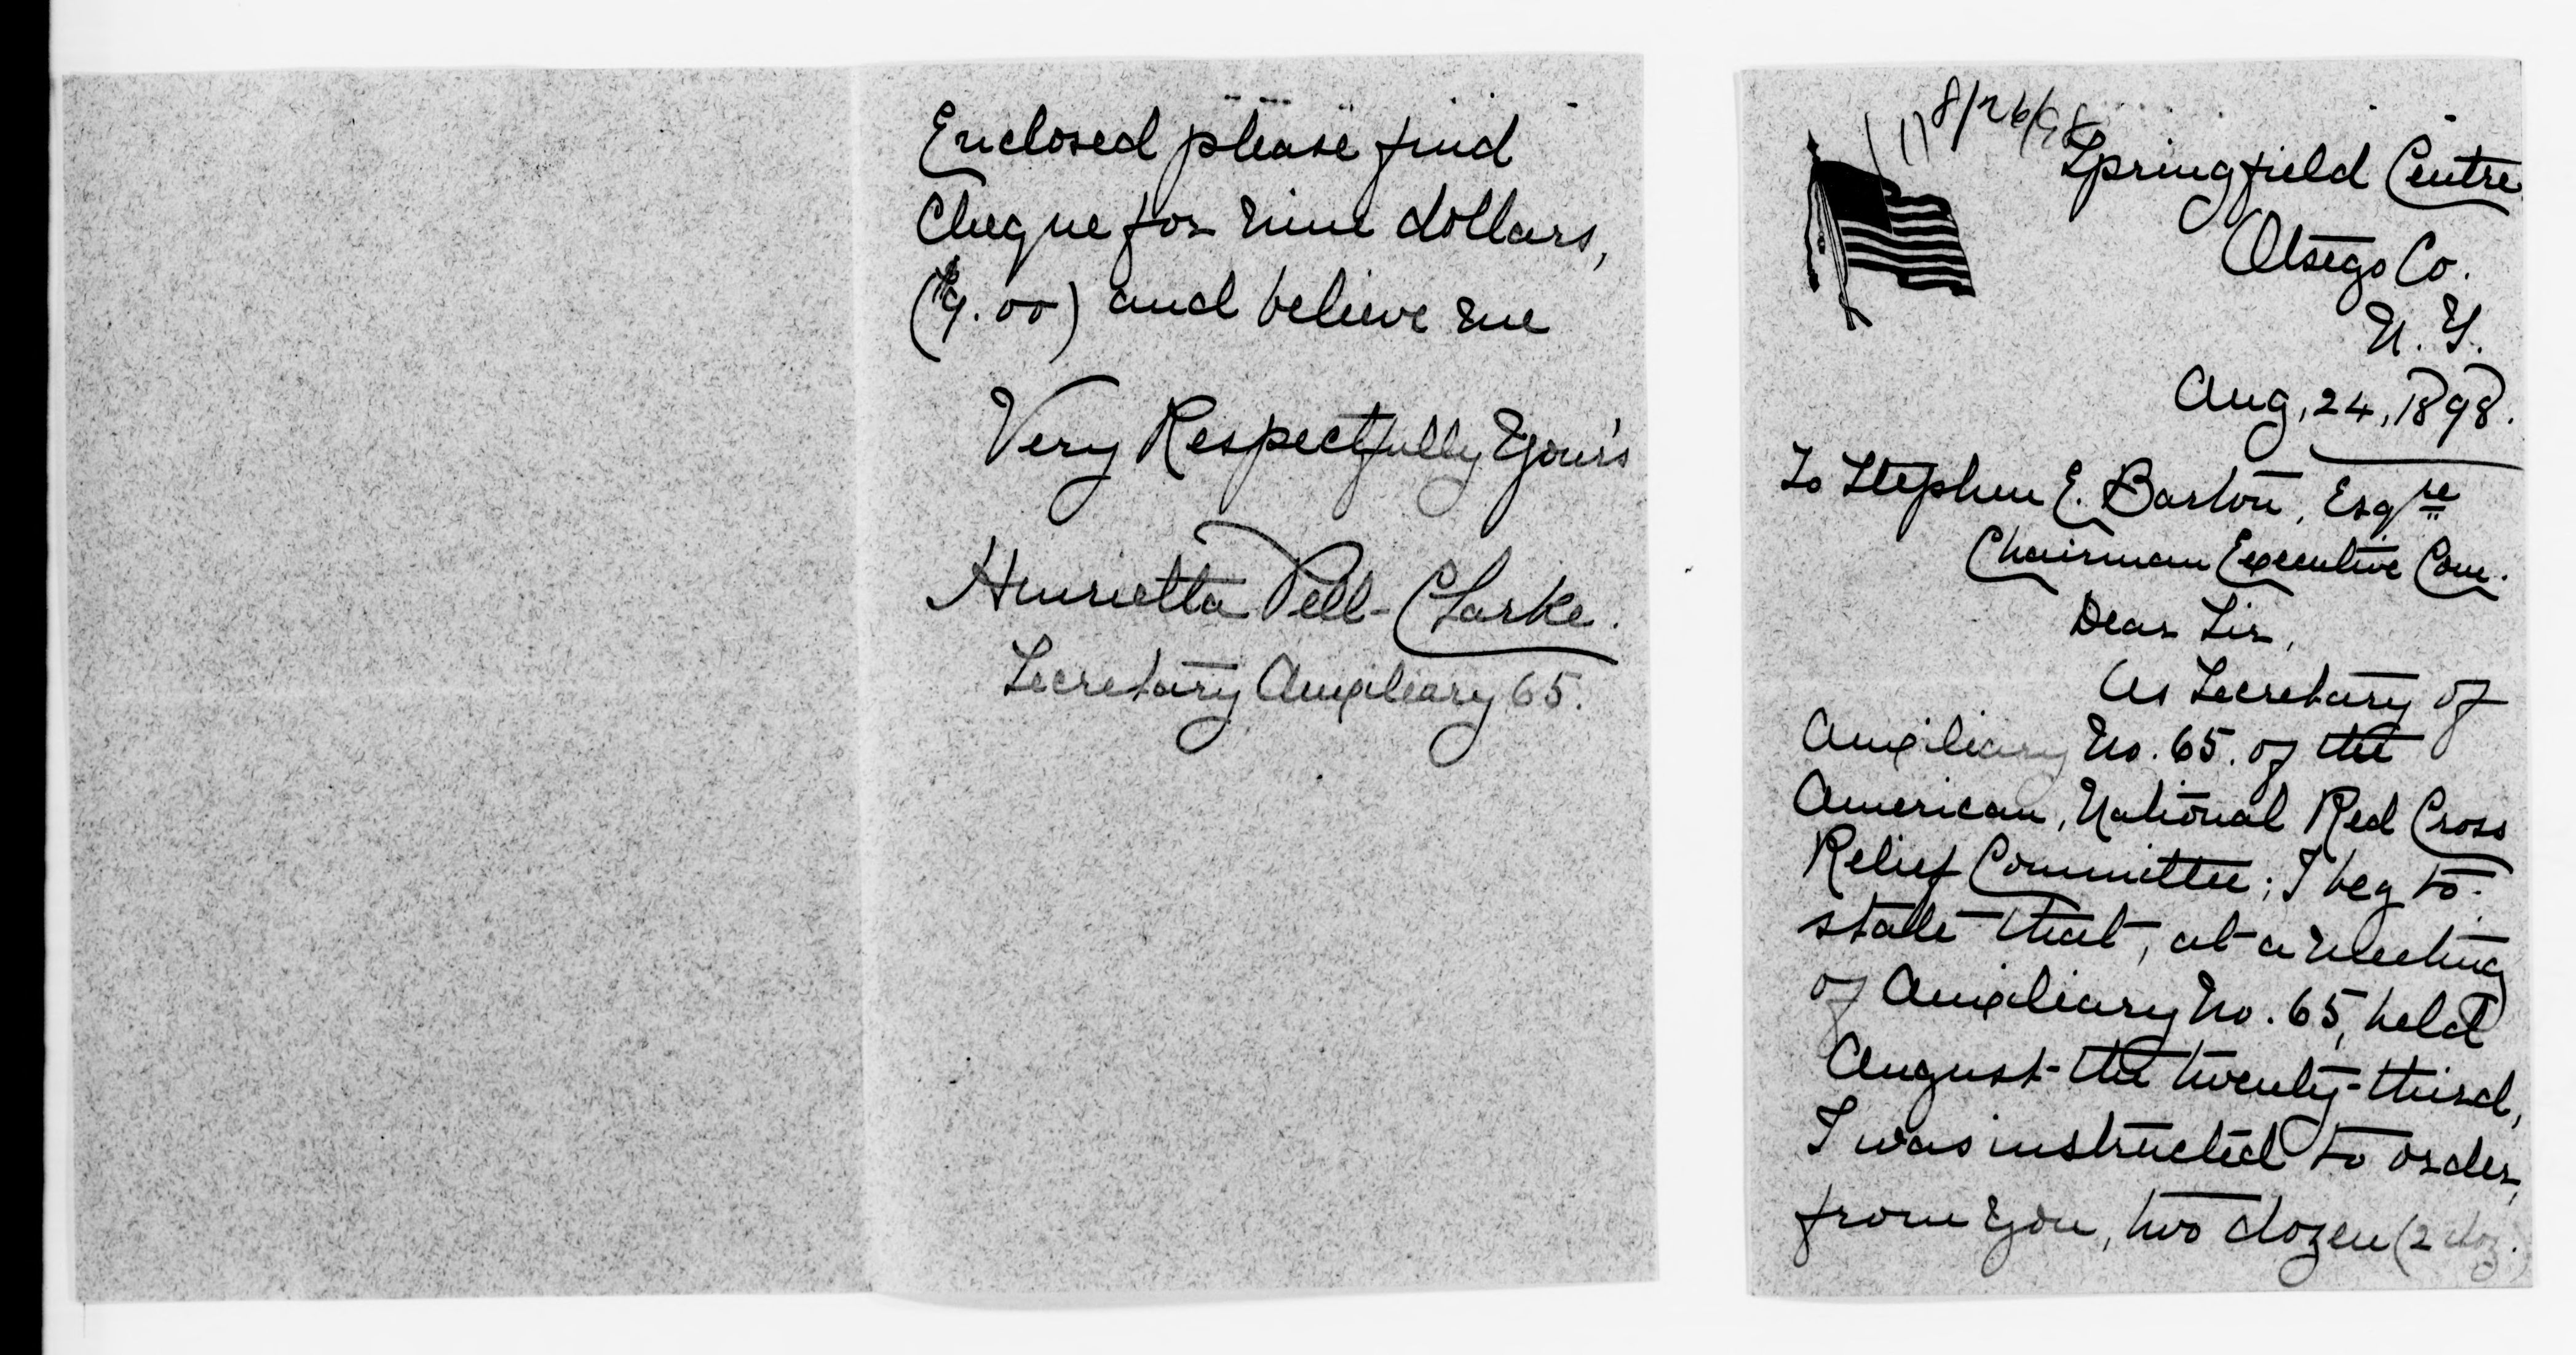 Enclosed please find
Cheque for nine dollars,
($9.00) and believe me
Very Respectfully Your's
Henrietta Pell-Clarke.
Secretary Auxiliary 65.
8/26/98
Springfield Centre
Otsego Co.
N.Y.
Aug, 24, 1898.
To Stephen E. Barton, Esqre
Chairman Executive Com.
Dear Sir,
As Secretary of
Auxiliary No. 65. of the
American, National Red Cross
Relief Committee; I beg to
state that, at a meeting
of Auxiliary No. 65, held
August the twenty-third,
I was instructed to order,
from you, two dozen (2 doz.)